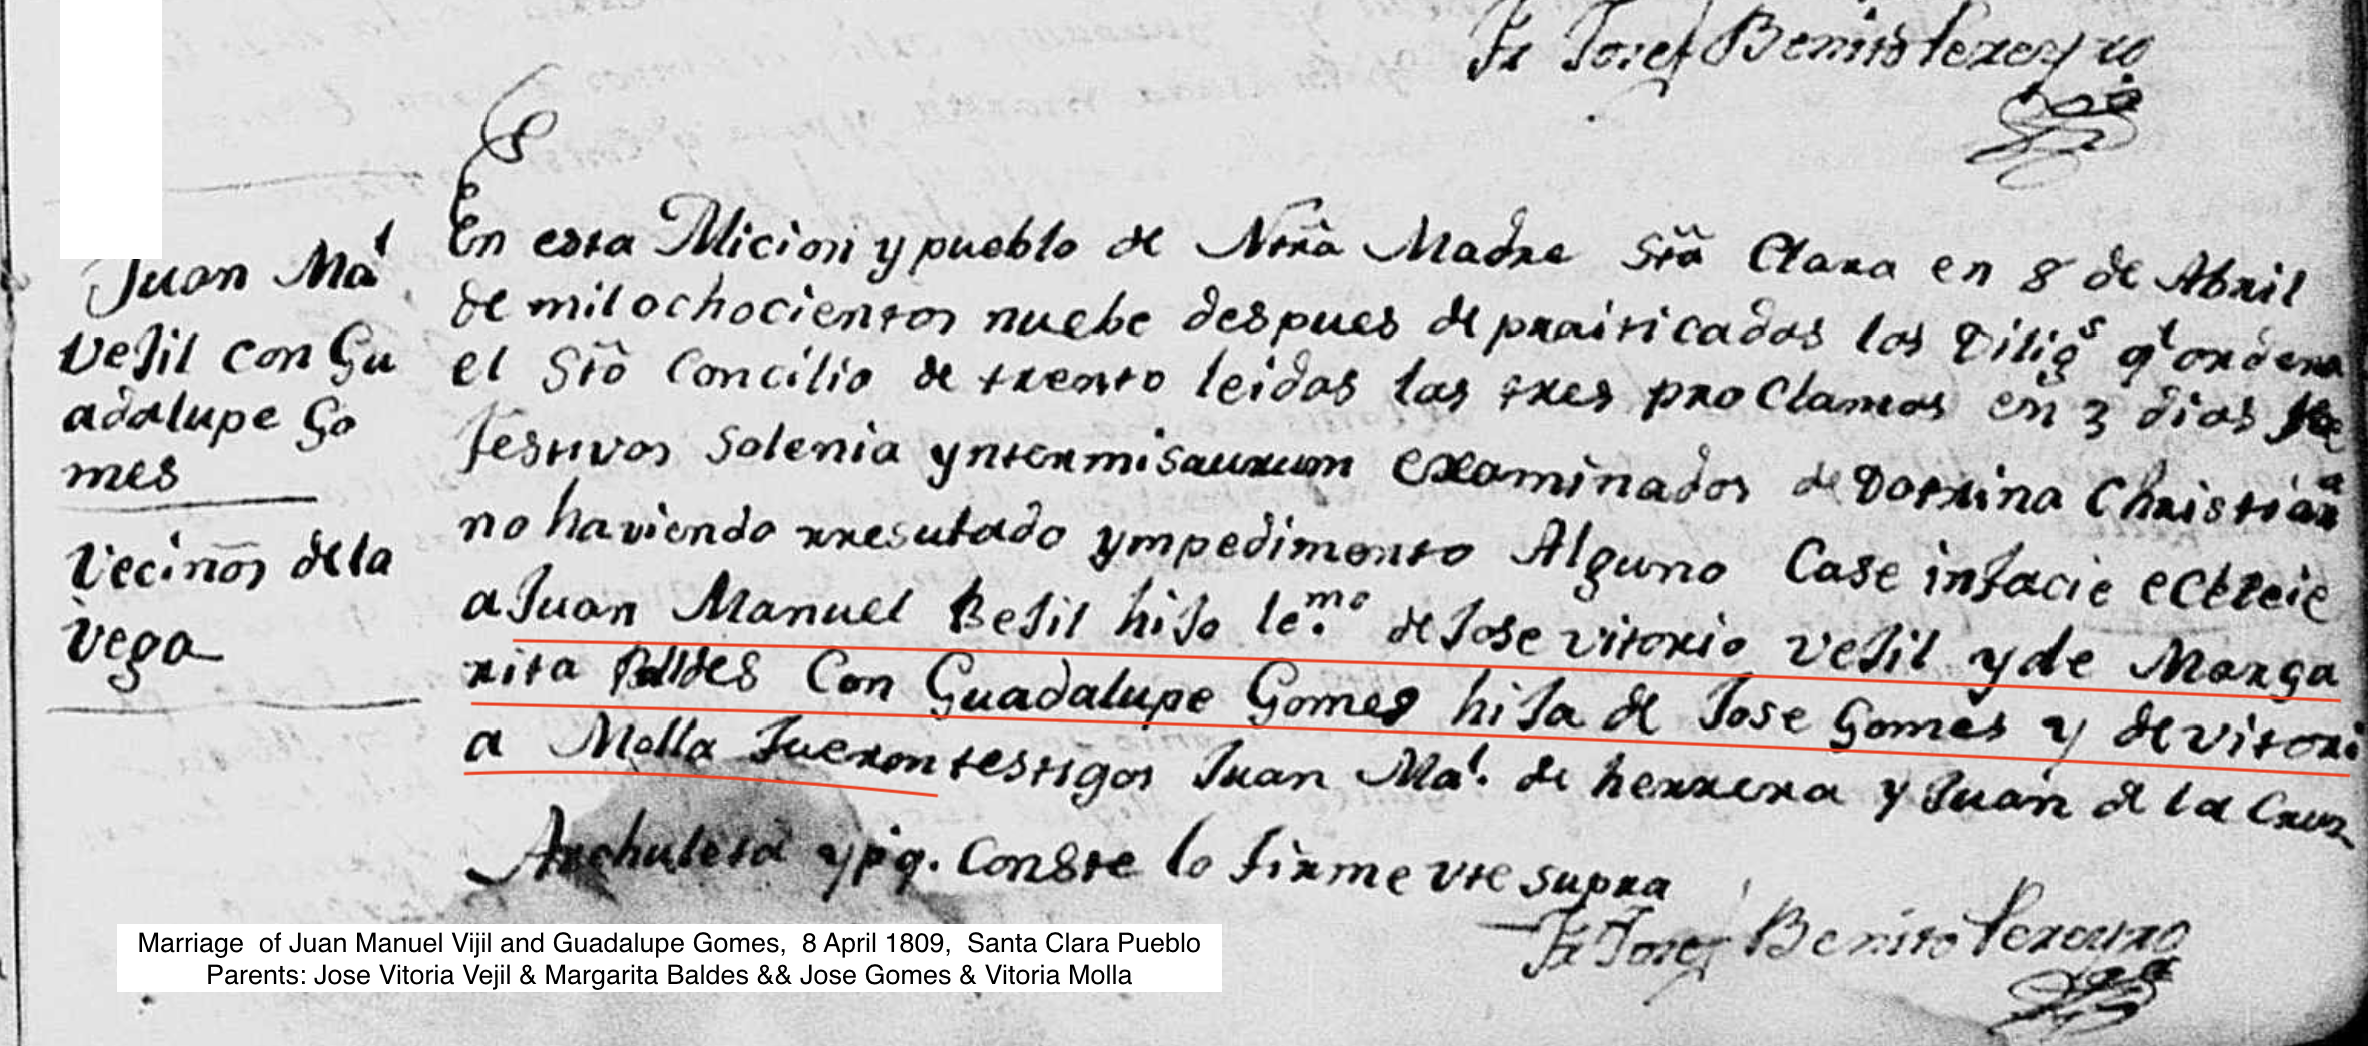 Fr Josef Benito Pereyro
Juan Ma^l
Vejil con Gu
adalupe Go
mes
Vecinos dela
Vega
En esta Micion y pueblo de Ntrā Madre Stā Clara en 8 de Abril
de mil ochocientos nuebe despues de praiticadas las Dilig^s q^l ordena
el Stō Concilio de trento leidas las tres proClamas en 3 dias
festivos Solenia yntermisaurum Examinados de Dotrina Christian^a
no haviendo rresutado ympedimento Alguno Case infacie ecleie
a Juan Manuel Bejil hijo le.^mo de Jose vitorio vejil y de Marga
rita Baldes Con Guadalupe Gomes hija de Jose Gomes y de vitori
a Molla fueron testigos Juan Ma^l. de herrera y Juan de la Cruz
Archuleta y pa q. Conste lo firme vte supra
Fr Josef Benito Pereyro
Marriage of Juan Manuel Vijil and Guadalupe Gomes, 8 April 1809, Santa Clara Pueblo
Parents: Jose Vitoria Vejil & Margarita Baldes && Jose Gomes & Vitoria Molla